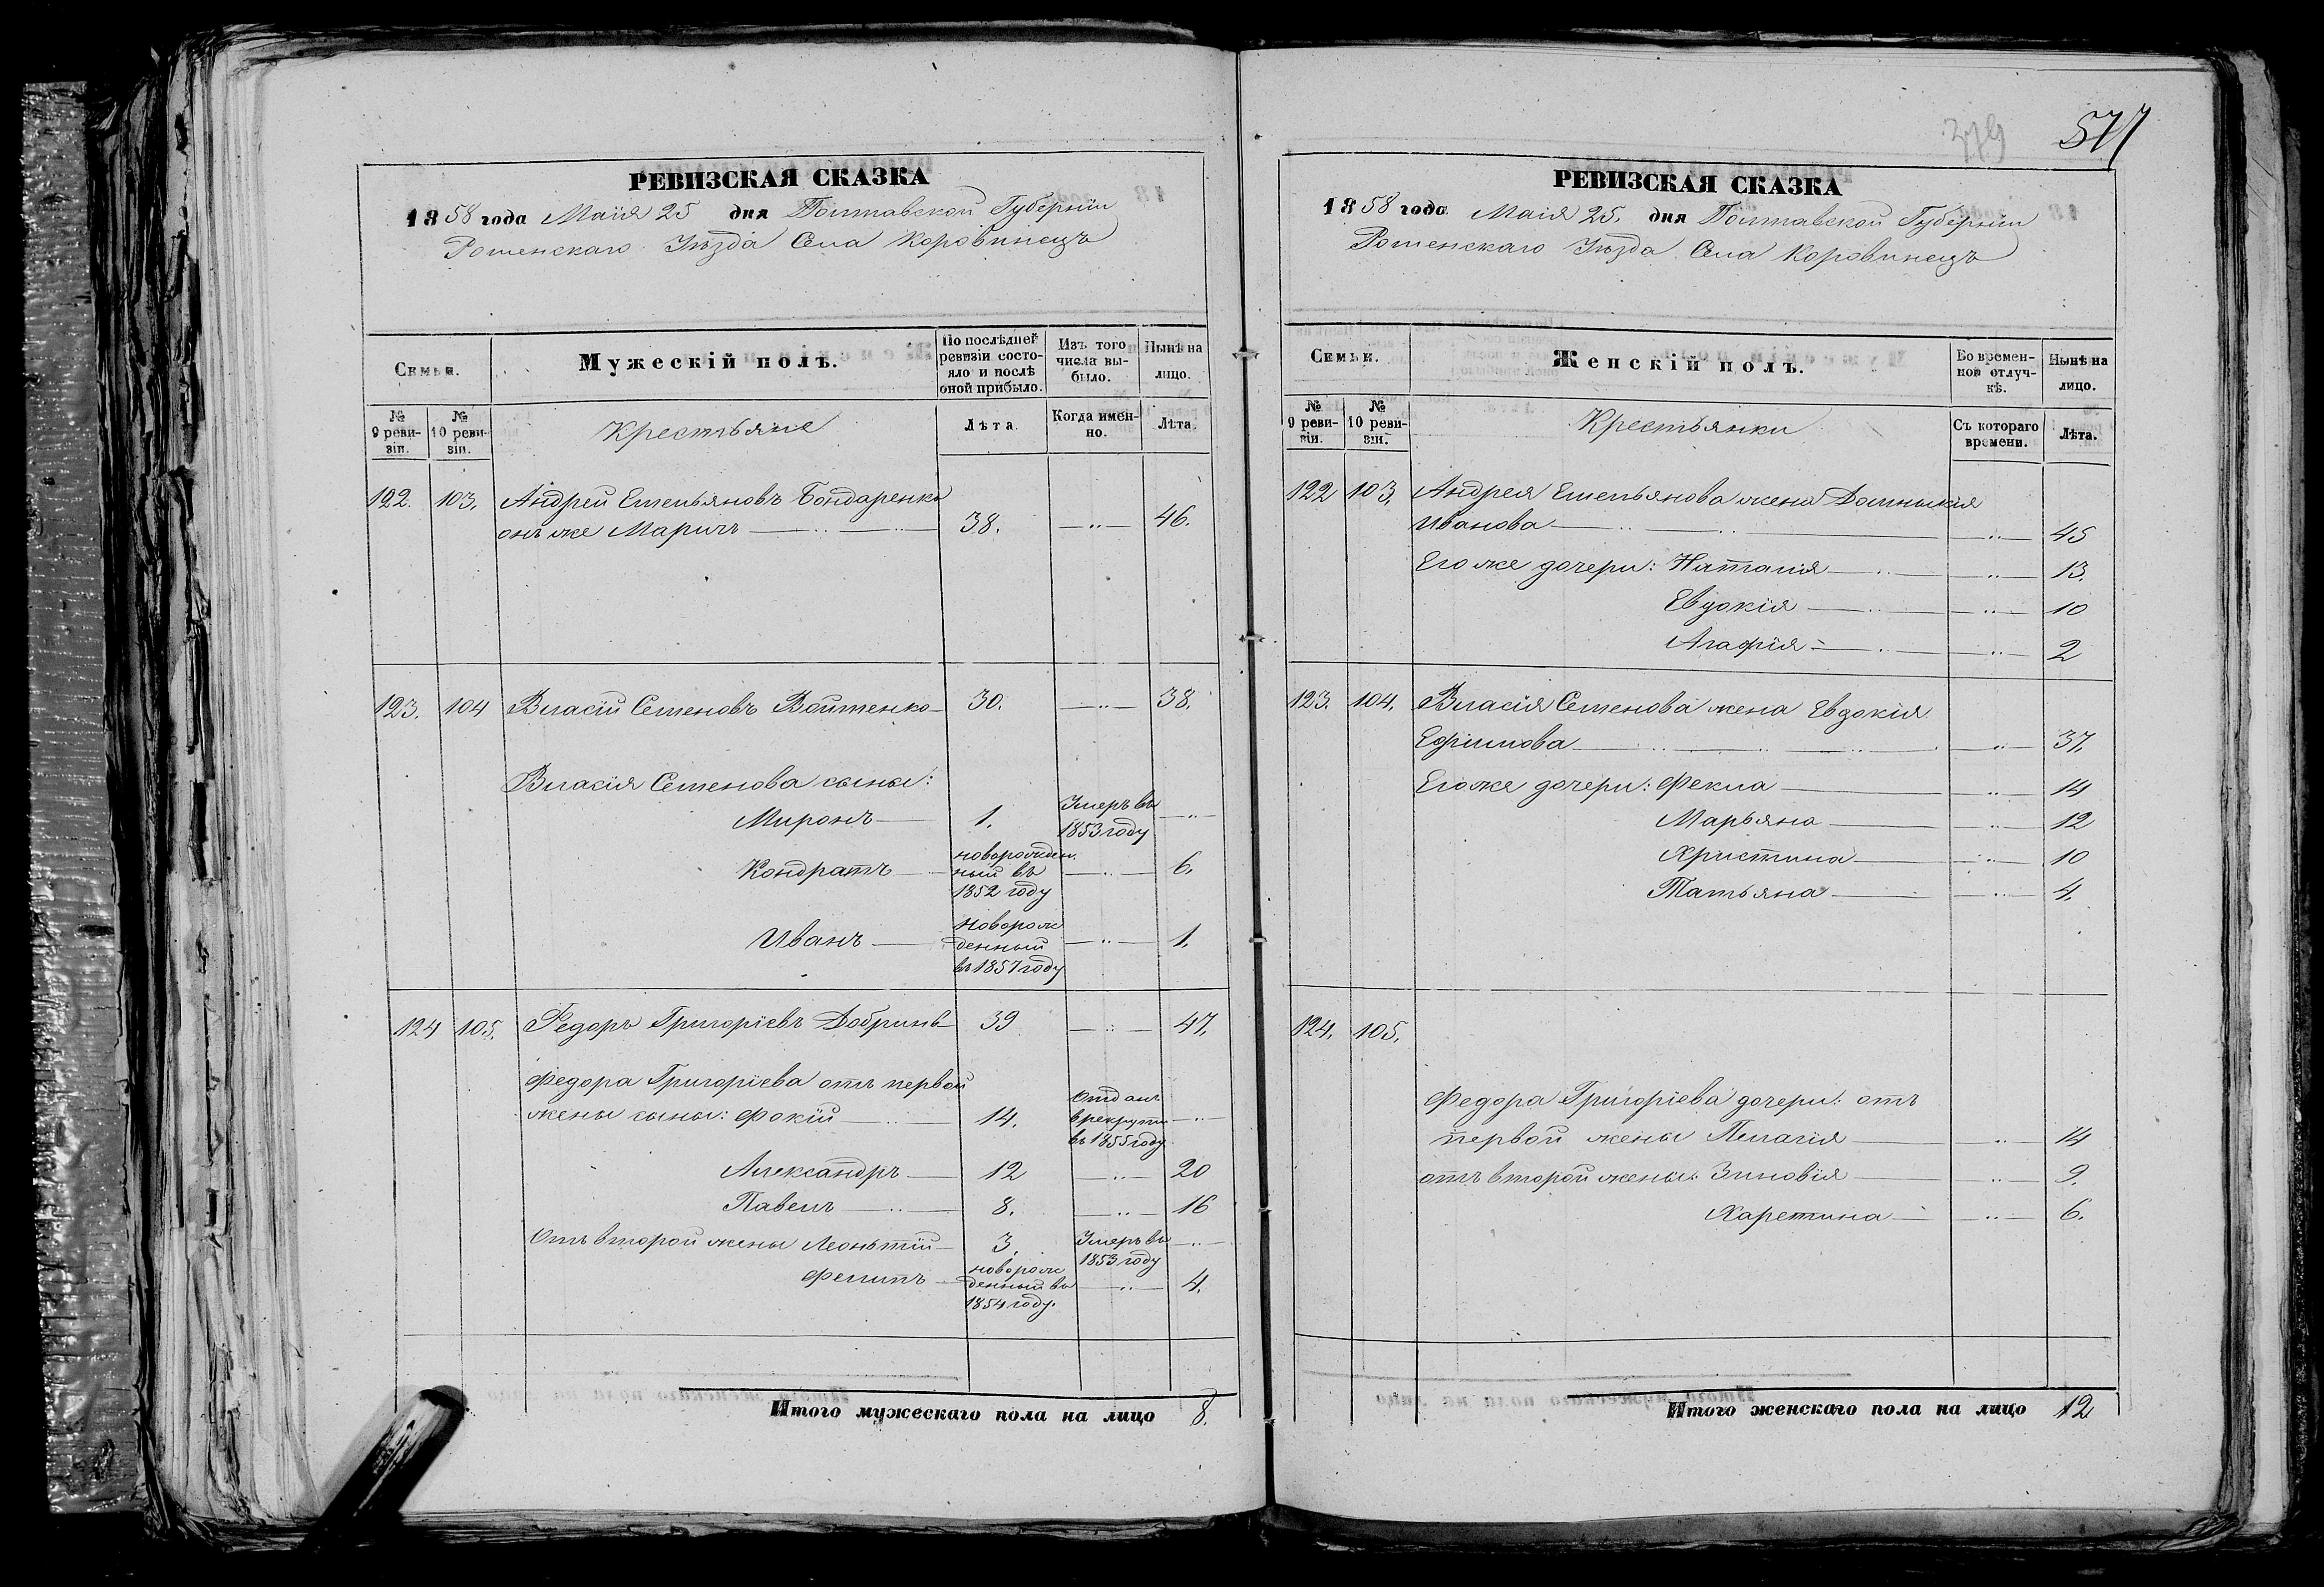 379
577
РЕВИЗСКАЯ СКАЗКА
1858 года Маія 25 дня Полтавской Губерніи
Роменскаго Уѣзда Села Коровинецъ
Семьи.
Мужескій полъ.
По послѣдней ревизіи состояло и послѣ оной прибыло.
Изъ того числа выбыло.
Нынѣ на лицо.
№ 9 ревизіи.
№ 10 ревизіи.
Крестьяне
Лѣта.
Когда именно.
Лѣта.
122. 103. Андрей Емельяновъ Бондаренко
онъ же Маричъ 38. 46.
123. 104 Власій Семеновъ Войтенко 30. 38.
Власія Семенова сыны:
Миронъ 1. Умеръ въ 1853 году
Кондратъ новорожден. ный въ 1852 году 6.
Иванъ новорож денный въ 1857 году 1.
124 105. Федоръ Григоріевъ Добринь 39 47.
Федора Григоріева отъ первой
жены сыны: Фокій 14. Отданъ в рекруты въ 1855 году
Александръ 12 20
Павелъ 8. 16
Отъ второй жены Леонтій 3. Умеръ въ 1853 году
Филипъ новорож денный въ 1854 году. 4.
Итого мужескаго пола на лицо 8.
РЕВИЗСКАЯ СКАЗКА
1858 года Маія 25. дня Полтавской Губерніи
Роменскаго Уѣзда Села Коровинецъ
Семьи.
Женскій полъ.
Во временной отлучкѣ.
Нынѣ на лицо.
№ 9 ревизіи.
№ 10 ревизіи.
Крестьянки
Съ котораго времени.
Лѣта.
122 103. Андрея Емельянова жена Домникія
Иванова 45
Его же дочери: Наталія 13.
Евдокія 10
Агафія 2
123. 104. Власія Семенова жена Евдокія
Ефимова 37.
Его же дочери: Фекла 14
Марьяна 12
Христина 10
Татьяна 4.
124. 105.
Федора Григоріева дочери: отъ
первой жены Пелагія 14
отъ второй жены: Зиновія 9.
Харетина 6.
Итого женскаго пола на лицо 12